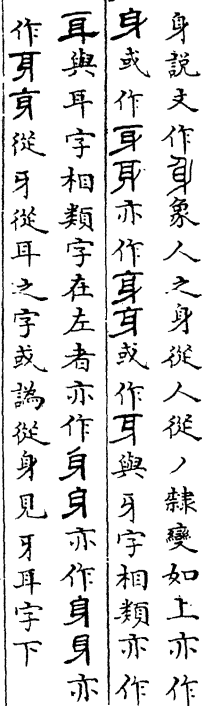 身說文作身象人之身從人從丿隸變如上亦作
身或作身身亦作身身或作耳與牙字相類亦作
耳與耳字相類字在左者亦作身身亦作身身亦
作身身從牙從耳之字或譌從身見牙耳字下